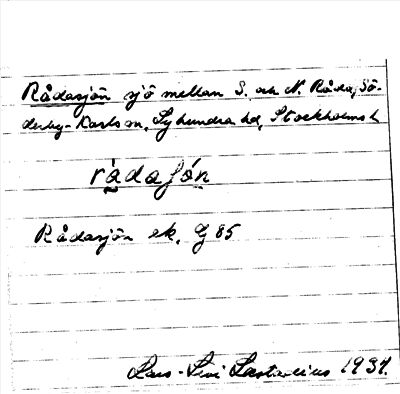 Rådasjön sjö mellan S. och N. Råda, Sö-
derby-Karls sn, Lyhundra hd, Stockholms l.
rådaʃón
Rådasjön ek. G 85
Lars-Levi Læstadius 1934.